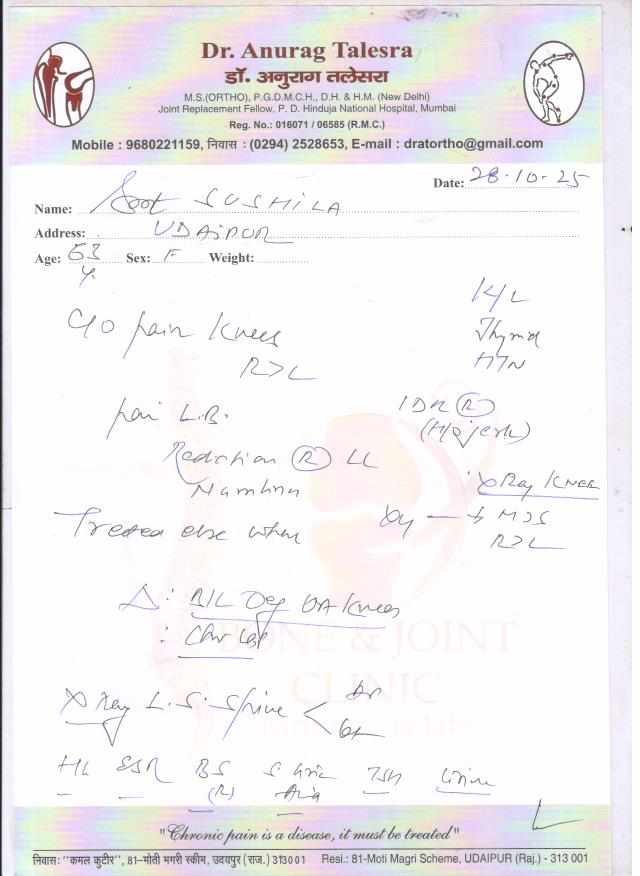 Dr. Anurag Talesra
डॉ. अनुराग तलेसरा
M.S.(ORTHO), P.G.D.M.C.H., D.H. & H.M. (New Delhi)
Joint Replacement Fellow, P. D. Hinduja National Hospital, Mumbai
Reg. No.: 016071 / 06585 (R.M.C.)
Mobile : 9680221159, निवास : (0294) 2528653, E-mail : dratortho@gmail.com
Date: 28.10.25
Name: Smt SUSHILA
Address: UDAIPUR
Age: 53 y. Sex: F Weight:
K/L
Thyroid
HTN
C/o pain knees
R>L
pain L.B.
Radiation (R) LL
Numbness
(H/o jerk)
X Ray KNEE
Treated else where
R>L
Δ: B/L Deg OA Knees
: Chr LBP
BONE & JOINT
CLINIC
Mobility is Life
X Ray L.S. Spine <
ESR BS (R) S Uric Acid TSH Urine
"Chronic pain is a disease, it must be treated"
निवास: "कमल कुटीर", 81-मोती मगरी स्कीम, उदयपुर (राज.) 313001 Resi.: 81-Moti Magri Scheme, UDAIPUR (Raj.) - 313 001